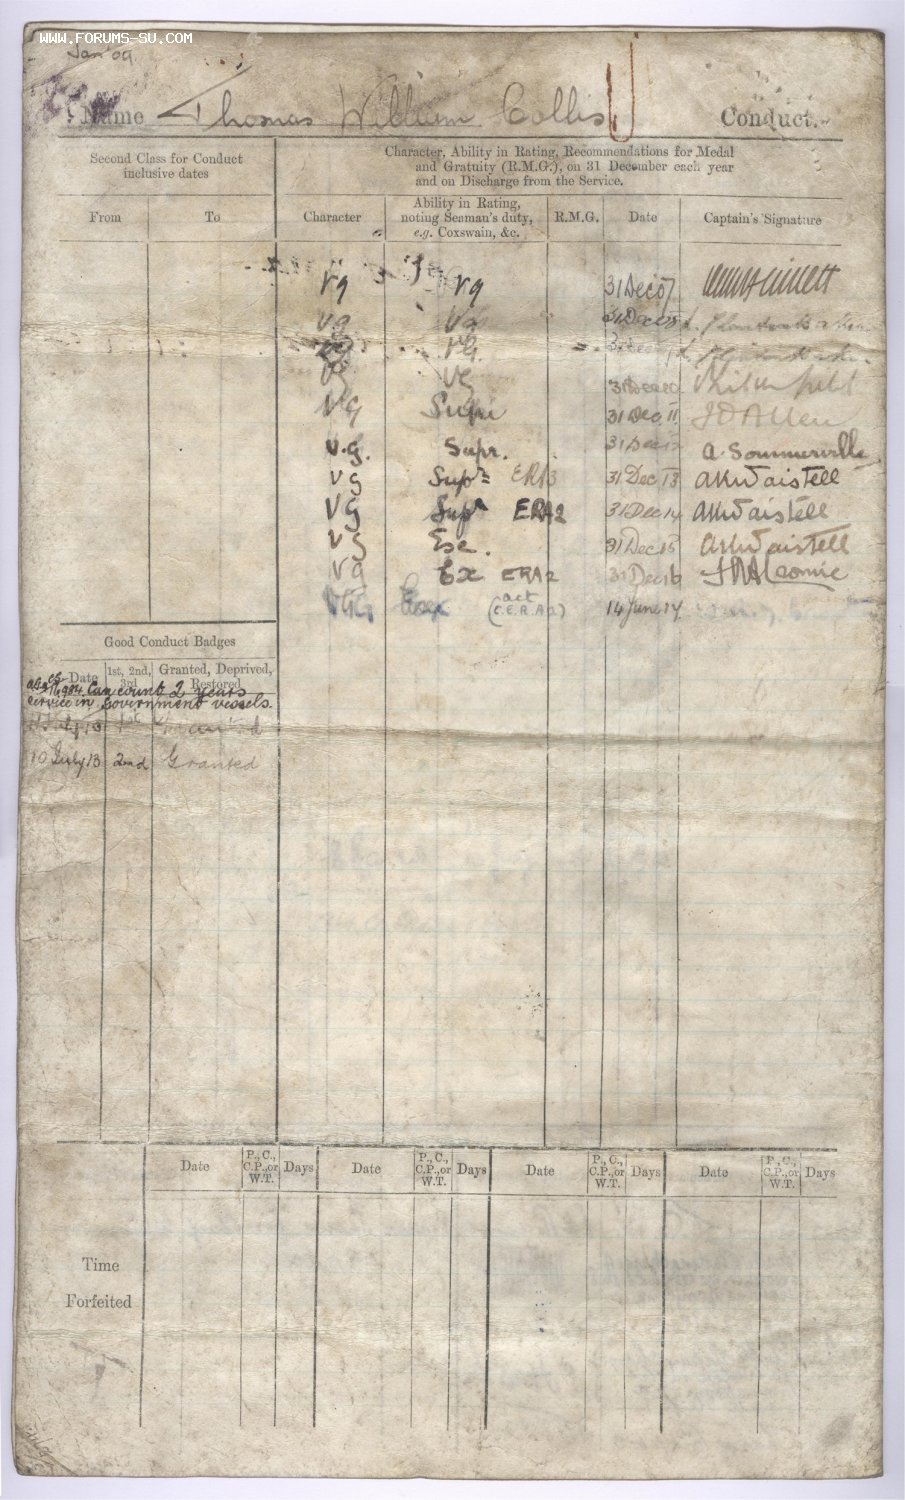 WWW.FORUMS-SU.COM
Jan 09
Name Thomas William Collis Conduct.
Second Class for Conduct
inclusive dates
Character, Ability in Rating, Recommendations for Medal
and Gratuity (R.M.G.), on 31 December each year
and on Discharge from the Service.
From To Character
Ability in Rating,
noting Seaman's duty,
e.g. Coxswain, &c.
R.M.G. Date Captain's Signature
Vg Vg 31 Dec 07
Vg Vg 31 Dec 08
Vg VG.
Vg VG 31 Dec 10
VG Supr 31 Dec 11 J D Allen
V.g. Supr. 31 Dec 12 A. Sommerville
Vg Supr ERA3 31 Dec 13 AKWaistell
VG Supr ERA2 31 Dec 14 AKWaistell
Vg Exc. 31 Dec 15 AKWaistell
Vg Ex ERA2 31 Dec 16
VG Exc (act C.E.R.A 2) 14 June 17
Good Conduct Badges
Date 1st, 2nd, 3rd Granted, Deprived, Restored
Can count 2 years
service in Government vessels.
1st Granted
10 July 13 2nd Granted
Date P., C., C.P., or W.T. Days Date P., C., C.P., or W.T. Days Date P., C., C.P., or W.T. Days Date P., C., C.P., or W.T. Days
Time
Forfeited